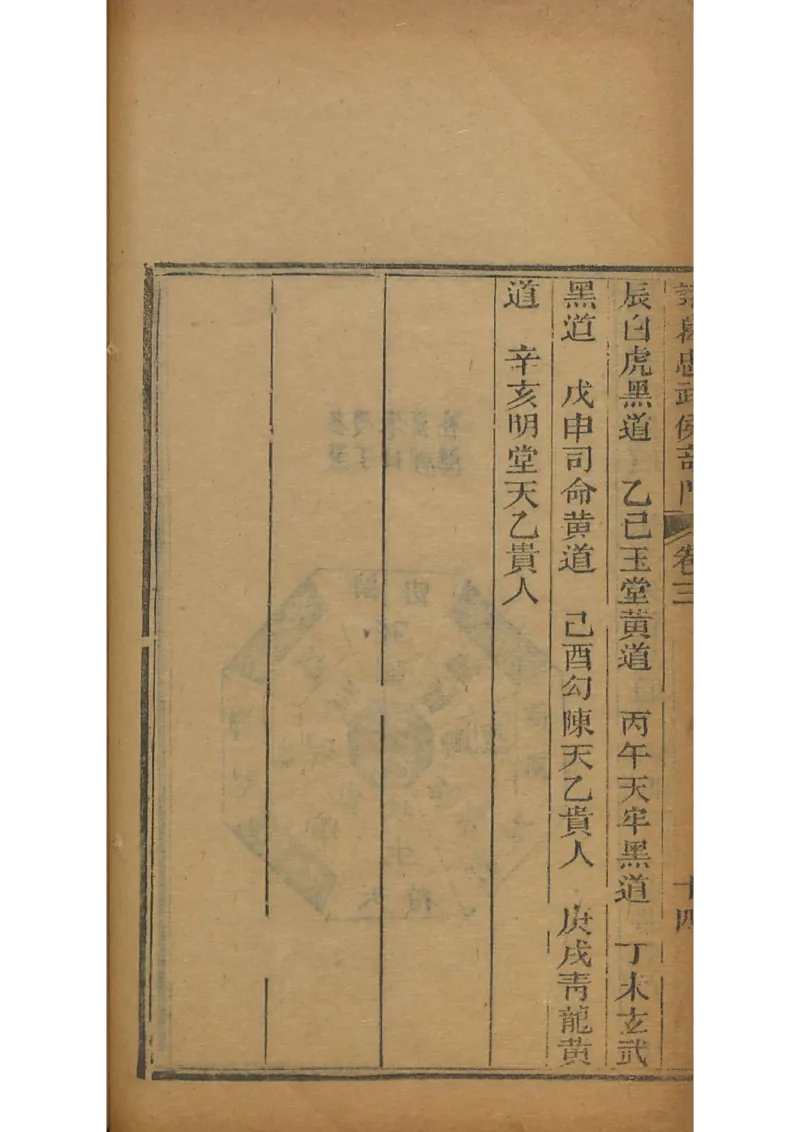 武侯奇門 卷三 十四
辰白虎黑道 乙已玉堂黄道 丙午天牢黑道 丁未玄武
黑道 戊申司命黄道 己酉勾陳天乙貴人 庚戌青龍黄
道 辛亥明堂天乙貴人